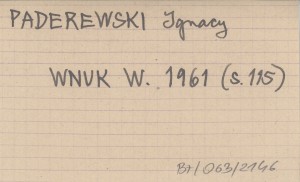 PADEREWSKI Ignacy
WNUK W. 1961 (s. 115)
BŁ/063/2146